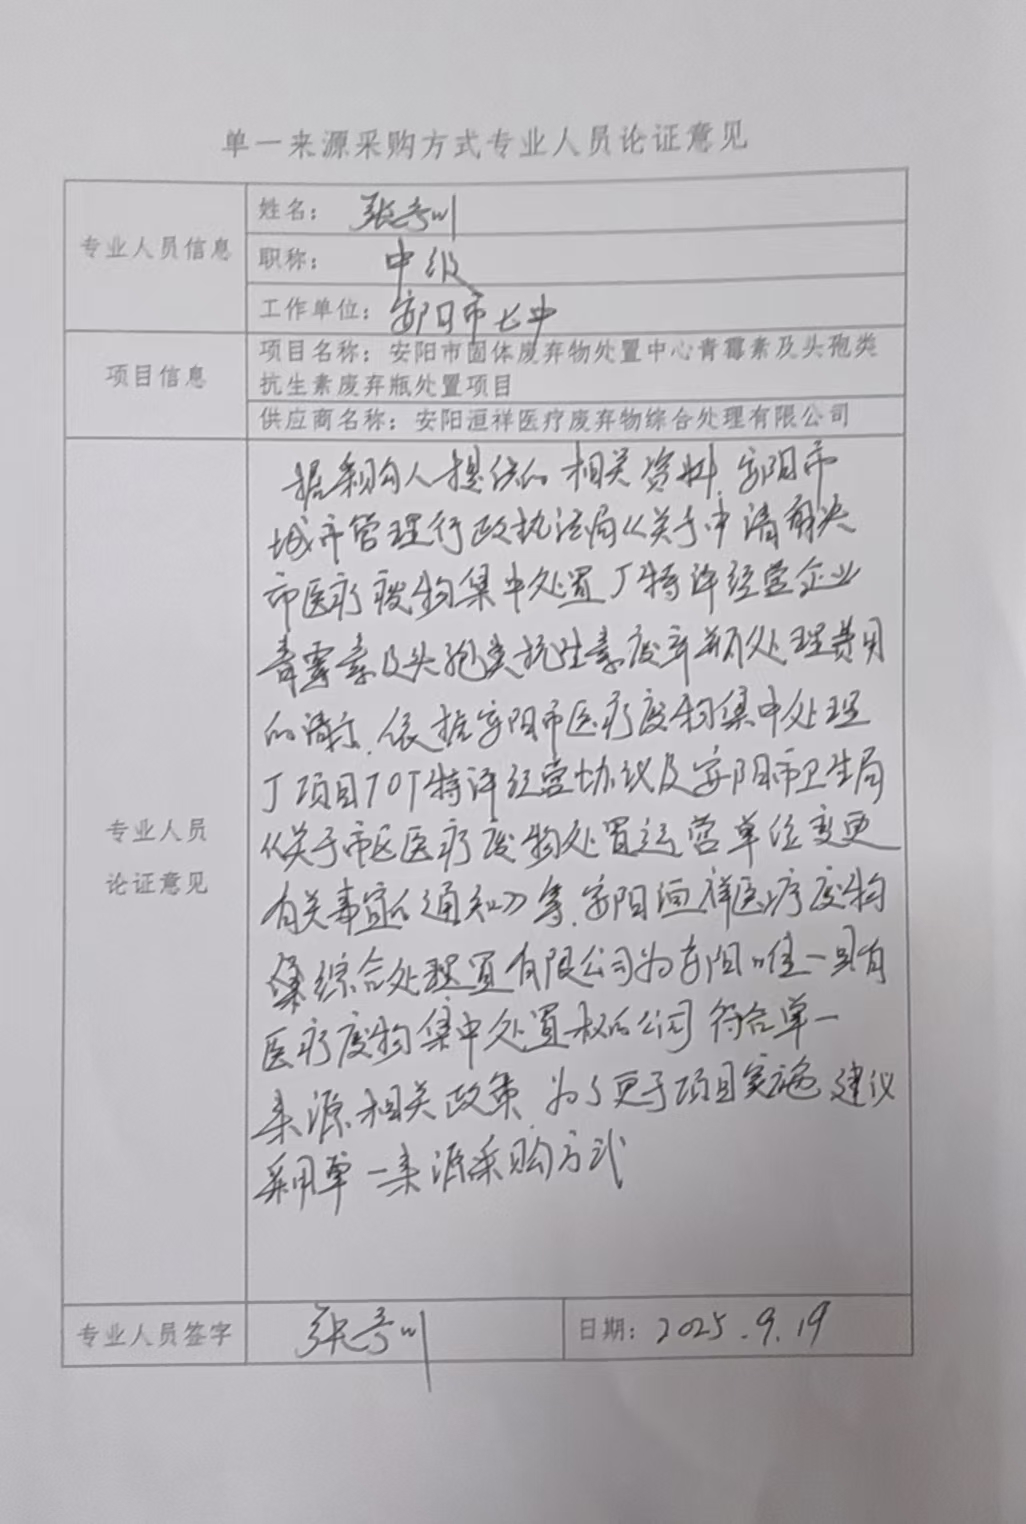 单一来源采购方式专业人员论证意见
专业人员信息
姓名： 张
职称： 中级
工作单位：安阳市七中
项目信息
项目名称：安阳市固体废弃物处置中心青霉素及头孢类
抗生素废弃瓶处置项目
供应商名称：安阳洹祥医疗废弃物综合处理有限公司
专业人员
论证意见
据采购人提供的相关资料，安阳市
城市管理行政执法局《关于申请解决
市医疗废物集中处置厂特许经营企业
青霉素及头孢类抗生素废弃瓶处理费用
的请示，依据安阳市医疗废物集中处理
厂项目TOT特许经营协议及安阳市卫生局
《关于市区医疗废物处置运营单位变更
有关事宜的通知》等，安阳洹祥医疗废物
综合处理置有限公司为安阳唯一具有
医疗废物集中处置权的公司 符合单一
来源相关政策 为了更于项目实施 建议
采用单一来源采购方式
专业人员签字
张
日期：2025.9.19